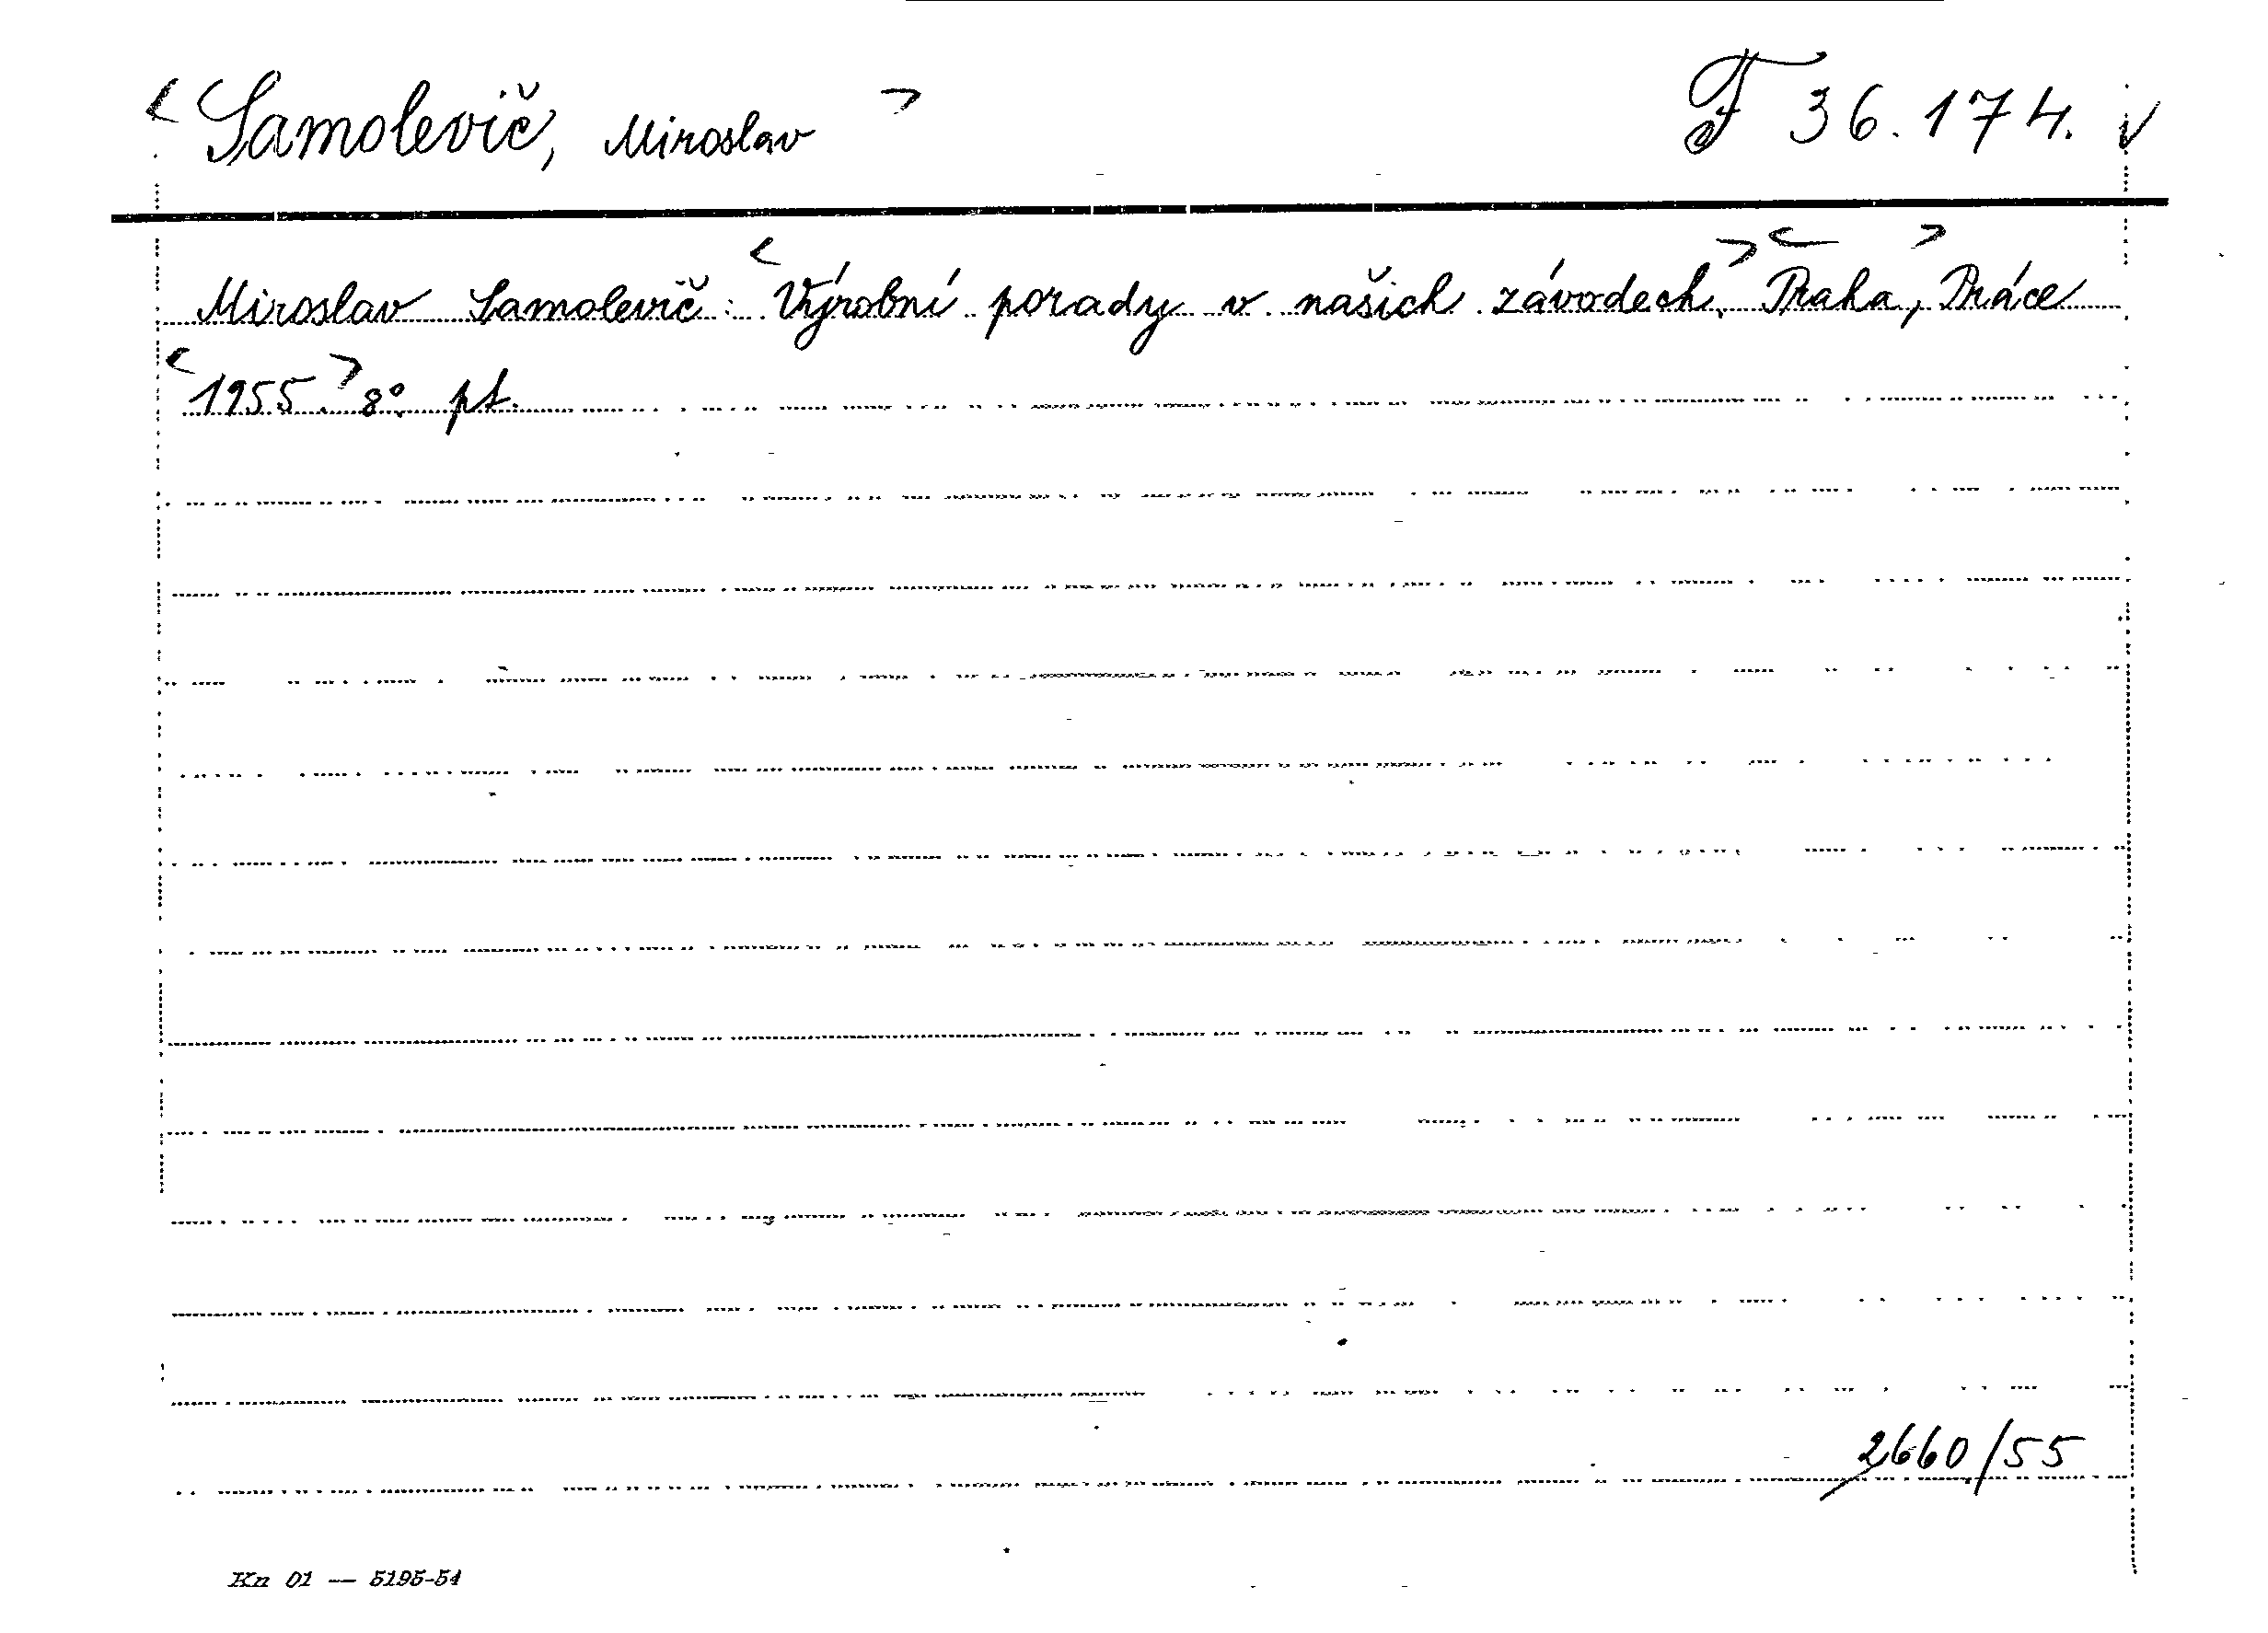 < Samolevič, Miroslav > F 36.174. v
Miroslav Samolevič: <Výrobní porady v našich závodech.> <Praha,> Práce
<1955.> 8°. pt.
2660/55
Kn 01 — 5195-54